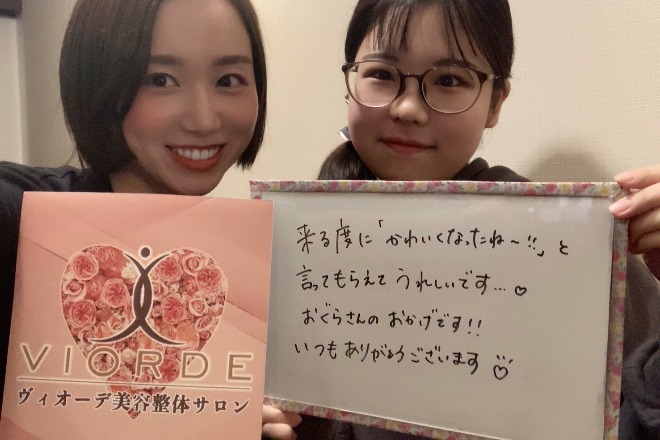 来る度に「かわいくなったね〜!!」と
言ってもらえてうれしいです…♡
おぐらさんのおかげです!!
いつもありがとうございます♡
VIORDE
ヴィオーデ美容整体サロン